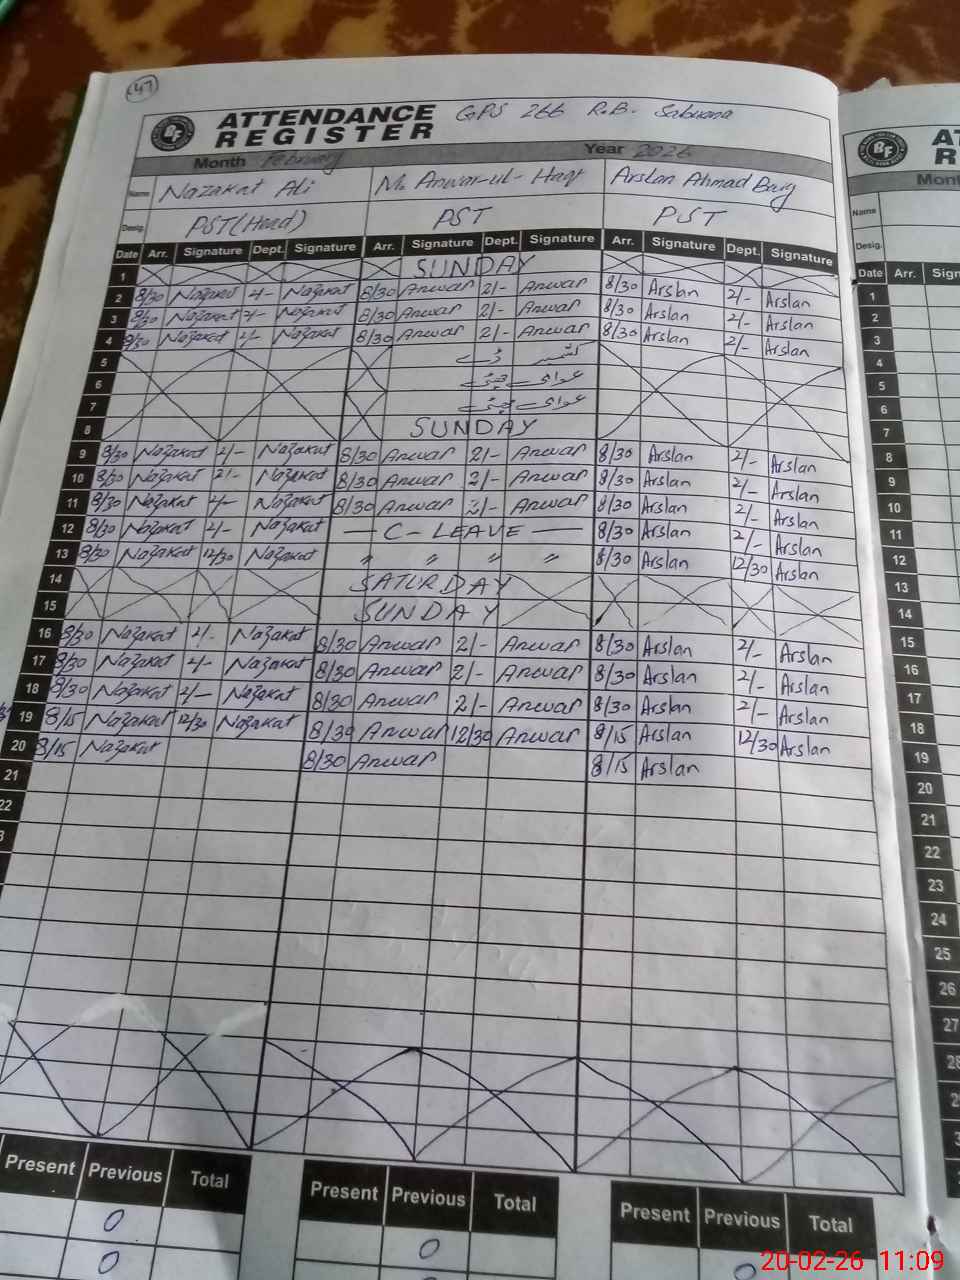 47
ATTENDANCE REGISTER GPS 266 R.B. Sabuana
Month February Year 2026
Name Nazakat Ali M. Anwar-ul-Haq Arslan Ahmad Baig
Desig. PST(Head) PST PST
Date Arr. Signature Dept. Signature Arr. Signature Dept. Signature Arr. Signature Dept. Signature
1 SUNDAY
2 8/30 Nazakat 2/- Nazakat 8/30 Anwar 2/- Anwar 8/30 Arslan 2/- Arslan
3 8/30 Nazakat 2/- Nazakat 8/30 Anwar 2/- Anwar 8/30 Arslan 2/- Arslan
4 8/30 Nazakat 2/- Nazakat 8/30 Anwar 2/- Anwar 8/30 Arslan 2/- Arslan
5 کشمیر ڈے
6
7
8 SUNDAY
9 8/30 Nazakat 2/- Nazakat 8/30 Anwar 2/- Anwar 8/30 Arslan 2/- Arslan
10 8/30 Nazakat 2/- Nazakat 8/30 Anwar 2/- Anwar 8/30 Arslan 2/- Arslan
11 8/30 Nazakat 2/- Nazakat 8/30 Anwar 2/- Anwar 8/30 Arslan 2/- Arslan
12 8/30 Nazakat 2/- Nazakat — C-LEAVE — 8/30 Arslan 2/- Arslan
13 8/30 Nazakat 12/30 Nazakat " " " " 8/30 Arslan 12/30 Arslan
14 SATURDAY
15 SUNDAY
16 8/30 Nazakat 2/- Nazakat 8/30 Anwar 2/- Anwar 8/30 Arslan 2/- Arslan
17 8/30 Nazakat 2/- Nazakat 8/30 Anwar 2/- Anwar 8/30 Arslan 2/- Arslan
18 8/30 Nazakat 2/- Nazakat 8/30 Anwar 2/- Anwar 8/30 Arslan 2/- Arslan
19 8/15 Nazakat 12/30 Nazakat 8/30 Anwar 12/30 Anwar 8/15 Arslan 12/30 Arslan
20 8/15 Nazakat 8/30 Anwar 8/15 Arslan
21
22
3
Present Previous Total Present Previous Total Present Previous Total
0 0 0
0
AT
R
Mont
Name
Desig.
Date Arr. Sign
1
2
3
4
5
6
7
8
9
10
11
12
13
14
15
16
17
18
19
20
21
22
23
24
25
26
27
28
20-02-26 11:09